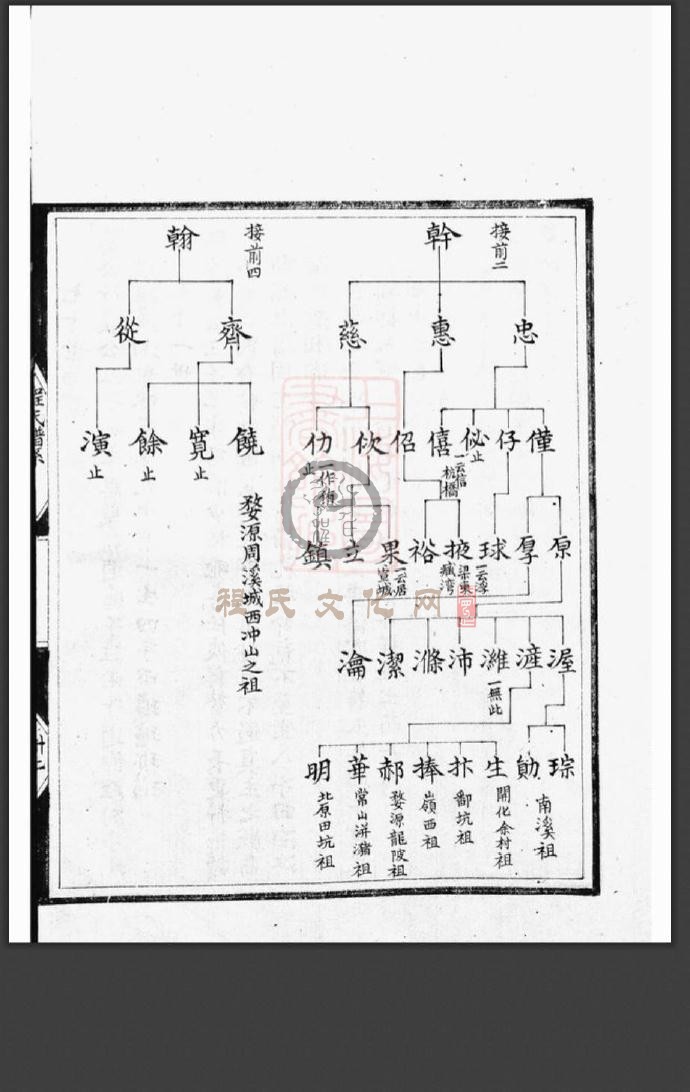 接前二
幹
忠
惠
慈
僅
仔
佖 一云信 止
僖 杭橋
佋
佽
仂 一作 止
原
厚
球 一云浮梁東
掖
裕
果 一云居宣城
立
鎮
渥
滻
濰 一無此
沛
滌
潔
瀹
琮
勛
南溪祖
生 開化余村祖
抃 鄱坑祖
捧 山嶺西祖
郝 婺源龍陂祖
華 常山洴瀦祖
明 北原田坑祖
接前四
翰
齊
從
饒
寬 止
餘 止
演 止
婺源周溪城西冲山之祖
程氏譜系
十二
程氏文化网